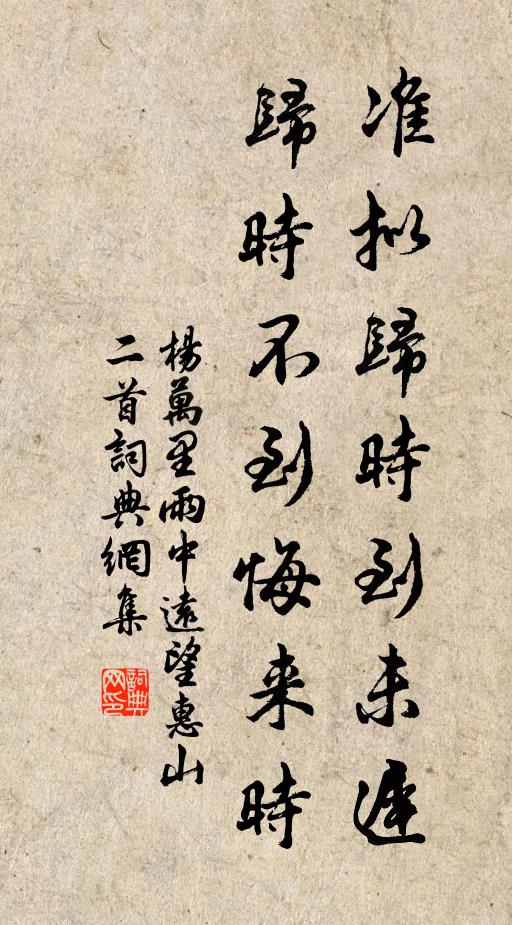 准拟歸時到未遲
歸時不到悔来時
楊萬里雨中遠望惠山
二首詞典網集
詞典
网印